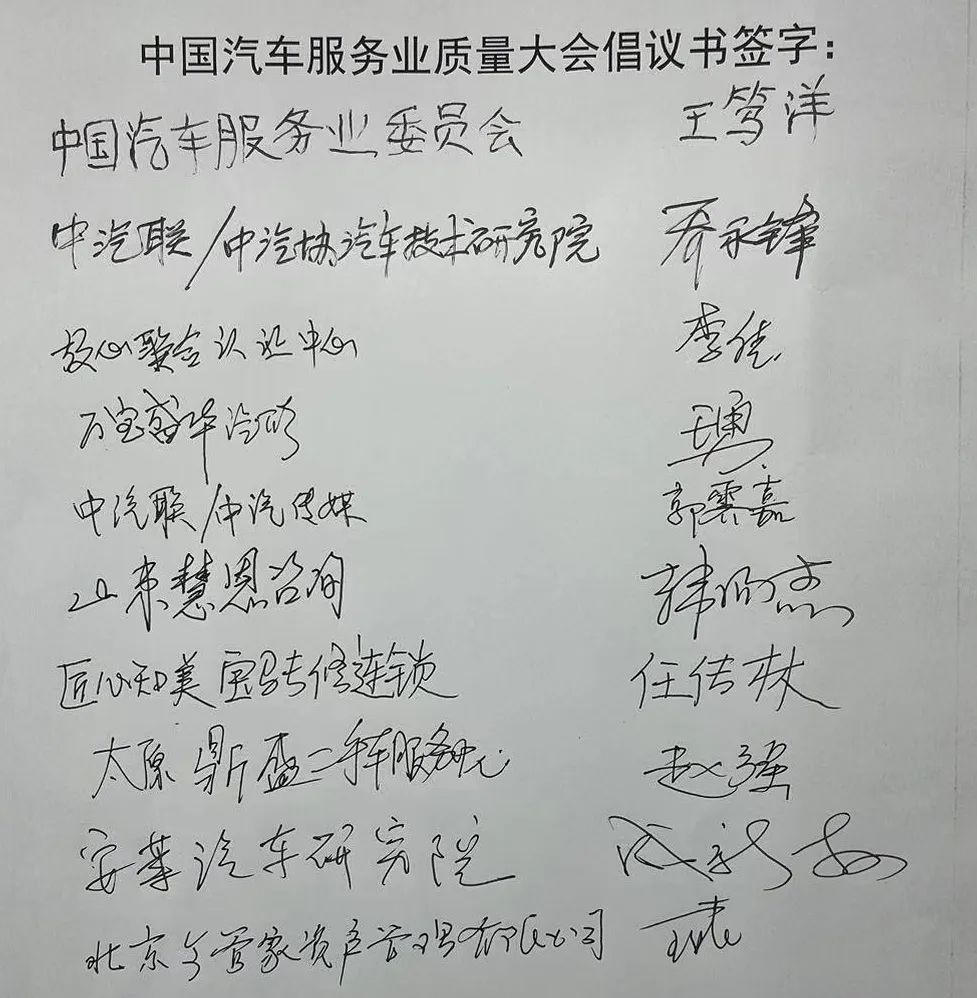 中国汽车服务业质量大会倡议书签字：
中国汽车服务业委员会 王笃洋
中汽联/中汽协汽车技术研究院 乔永锋
放心联合认证中心 李佳
万宝盛华汽修 王勇
中汽联/中汽传媒 郭云嘉
山东慧恩咨询 韩炳杰
匠心知美宝马专修连锁 任传林
太原鼎盛二手车服务中心 赵强
安莘汽车研究院
北京车管家资产管理有限公司